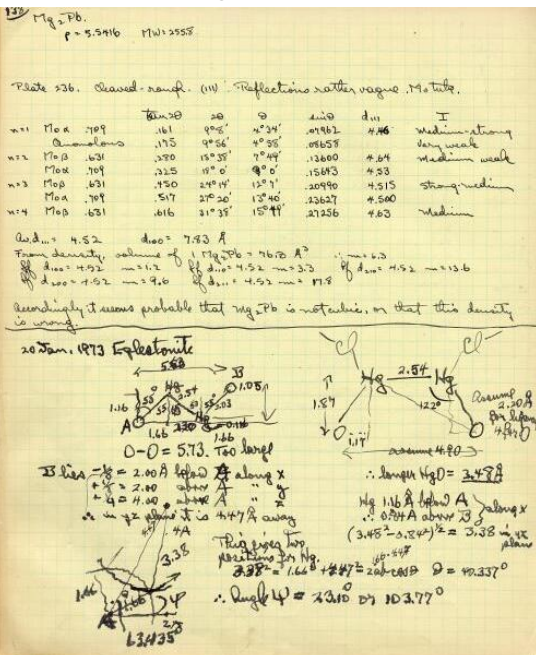 138
Mg2Pb.
ρ = 5.5416 MW = 255.8
Plate 236. Cleaved-rough. (111) Reflections rather vague. Mo tube.
tan2θ 2θ θ sinθ d111 I
n=1 Moα .709 .161 9°8' 4°34' .07962 4.46 Medium-strong
Anomalous .175 9°56' 4°58' .08658 Very weak
n=2 Moβ .631 .280 15°38' 7°49' .13600 4.64 Medium weak
Moα .709 .325 18°0' 9°0' .15643 4.53
n=3 Moβ .631 .450 24°14' 12°7' .20990 4.515 Strong-medium
Moα .709 .517 27°20' 13°40' .23627 4.500
n=4 Moβ .631 .616 31°38' 15°49' .27256 4.63 Medium
Av. d111 = 4.52 d100 = 7.83 Å
From density, volume of 1 Mg2Pb = 76.0 Å3 ∴ m = 6.3
If d100 = 4.52 m = 1.2 If d110 = 4.52 m = 3.3 If d210 = 4.52 m = 13.6
If d200 = 4.52 m = 9.6 If d211 = 4.52 m = 17.8
Accordingly it seems probable that Mg2Pb is not cubic, or that this density
is wrong.
20 Jan. 1973 Eglestonite
Cl Cl
Hg 2.54 Hg
B
Hg
1.05
1.16
2.54
2.03
A
1.66 1.66
1.87
122°
Assume
2.20 Å
O O
1.17
assume 4.90
O-O = 5.73. Too large
B lies -½ = 2.00 Å below A along x
+ ½ = 2.00 above A " y
+ 1 = 4.00 above A " z
∴ in yz plane it is 4.47 Å away
∴ longer HgO = 3.48 Å
Hg 1.16 Å below A
∴ 0.84 Å above B } along x
(3.48² - 0.84²)^½ = 3.38 in yz
plane
This gives two
positions for Hg.
3.38
1.66
ψ
∴ Angle ψ = 23.10° or 103.77°
63.435°